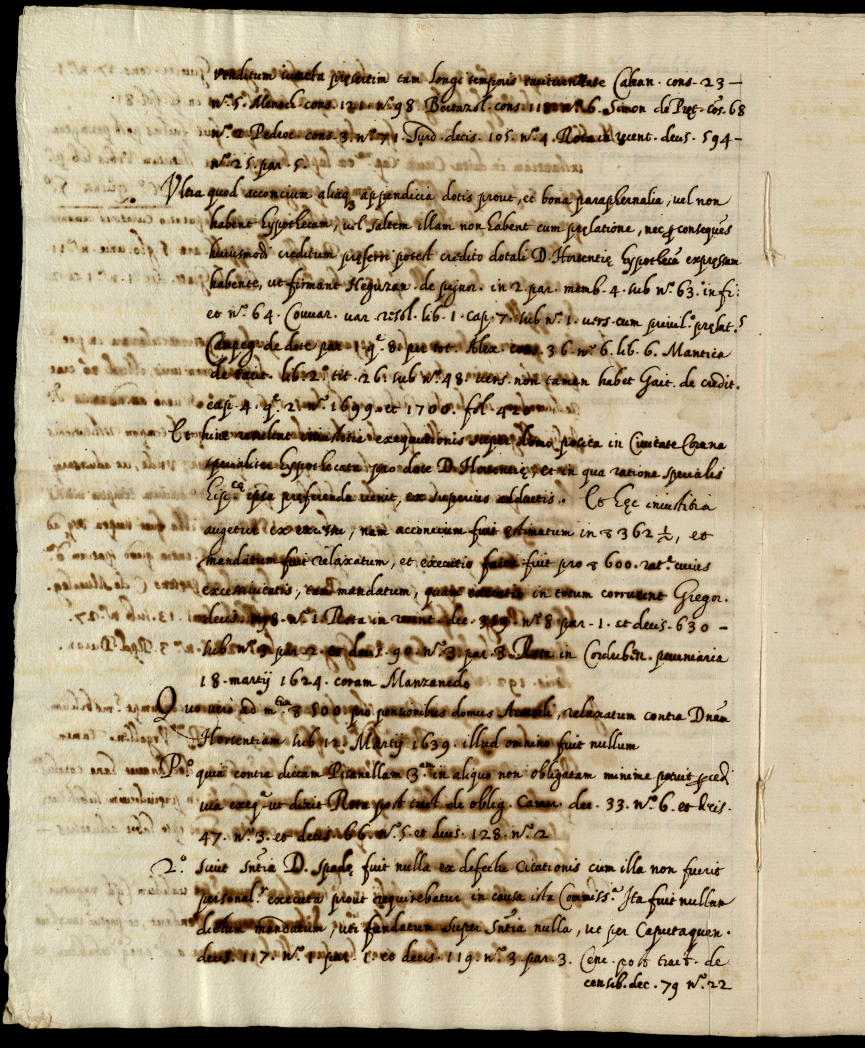 venditum iuncta presertim tam longi temporis taciturnitate Caban. cons. 23 –
n.º 5. Menoch. cons. 121. n.º 98 Bertazol. cons. 118 n.º 6. Simon de Pręt. cōs. 68
n.º 2 Pedroc. cons. 3. n.º 71. Turd. decis. 105. n.º 4. Rota in recent. decis. 594 –
n.º 25. par. 5.
Ultra quod acconcium aliaq3 appendicia dotis prout, et bona paraphernalia, vel non
habent hypothecam, vel saltem illam non habent cum pręlatione, nec ꝑ conseques
huiusmodi creditum pręferri potest credito dotali D. Hortentię hypothecā expressam
habente, ut firmant Neguzan. de pignor. in 2. par. memb. 4. sub n.º 63. in fi:
et n.º 64. Couuar. var. resol. lib. 1. cap. 7. sub n.º 1. vers. cum priuil.º prelat.s
Campeg. de dote par. 1. q. 8. per tot. Alex. cons. 36. n.º 6. lib. 6. Mantica
de tacit. lib. 2.º tit. 26. sub n.º 48. vers. non tamen habet Gait. de credit.
cap. 4. q. 2. n.º 1699. et 1700. fol. 420
Et hinc resultat iniustitia exequutionis super domo posita in Ciuitate
specialiter hypothecata pro dote D. Hortentię, et in qua ratione specialis
ipsa pręferenda venit, ex superius adductis. Et hęc iniustitia
augetur ex excessu, nam acconcium fuit estimatum in ꝸ 362 ½, et
mandatum fuit relaxatum, et executio fuit pro ꝸ 600. rat.e cuius
excessiuitatis, tam mandatum, quam executio in totum corruunt Gregor.
decis. n.º 1. Rota in recent. dec. n.º 8 par. 1. et decis. 630 –
sub n.º 3 par. 2. et decis. 90. n.º 3. par. 3. Rota in Corduben. pecuniaria
18. martij 1624. coram Manzanedo
Quo vero ad m.tum ꝸ 500. pro pensionibus domus relaxatum contra Dnam
Hortentiam sub 12. Martij 1639. illud omnino fuit nullum
P.º quia contra dictam Pitanellam 3.am in aliquo non obligatam minime potuit ꝑcedi
via exeq.a ut dixit Rota post tract. de oblig. Camer. dec. 33. n.º 6. et decis.
47. n.º 3. et decis. 66. n.º 5. et decis. 128. n.º 2
2.º sicut Sntia D. Spadę fuit nulla ex defectu citationis cum illa non fuerit
personal.r executa prout requirebatur in causa ista Commiss.a Ita fuit nullum
dictum mandatum, uti fundatum super Sntia nulla, ut per Caputaquen.
decis. 117. n.º 1 par. 1. et decis. 119. n.º 3. par. 3. Cenc. post tract. de
censib. dec. 79 n.º 22